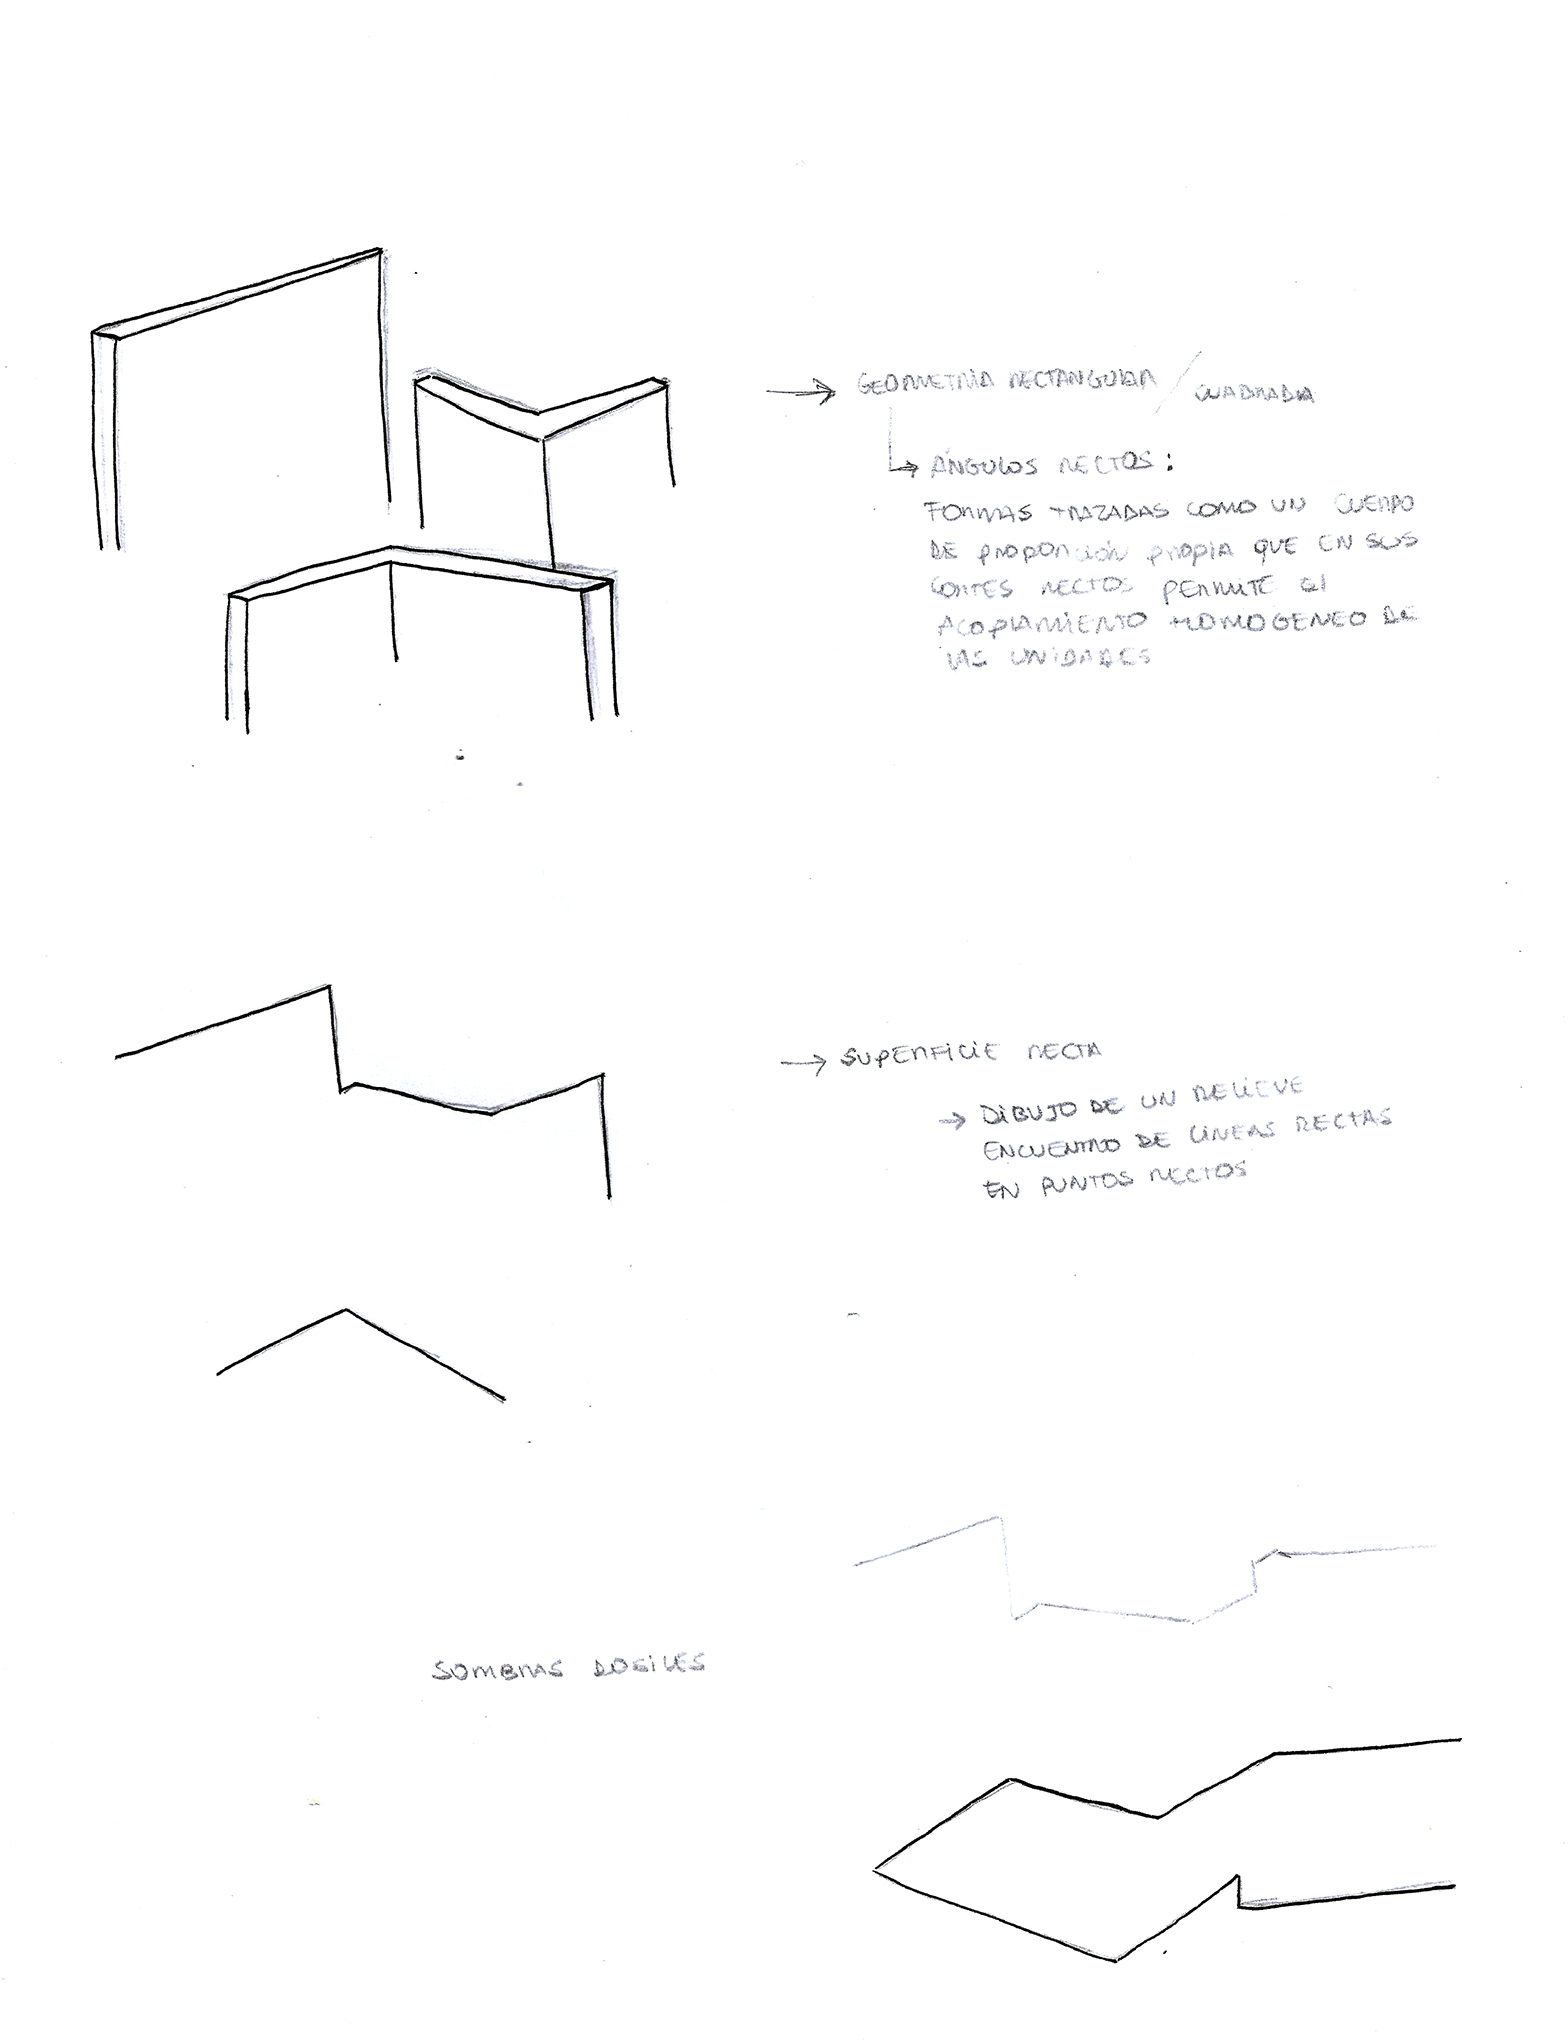 → GEOMETRIA RECTANGULAR / CUADRADA
↳ ÁNGULOS RECTOS:
FORMAS TRAZADAS COMO UN CUERPO
DE PROPORCIÓN PROPIA QUE EN SUS
CORTES RECTOS PERMITE El
ACOPLAMIENTO HOMOGENEO DE
LAS UNIDADES
→ SUPERFICIE RECTA
→ DIBUJO DE UN RELIEVE
ENCUENTRO DE LINEAS RECTAS
EN PUNTOS RECTOS
SOMBRAS DOCILES